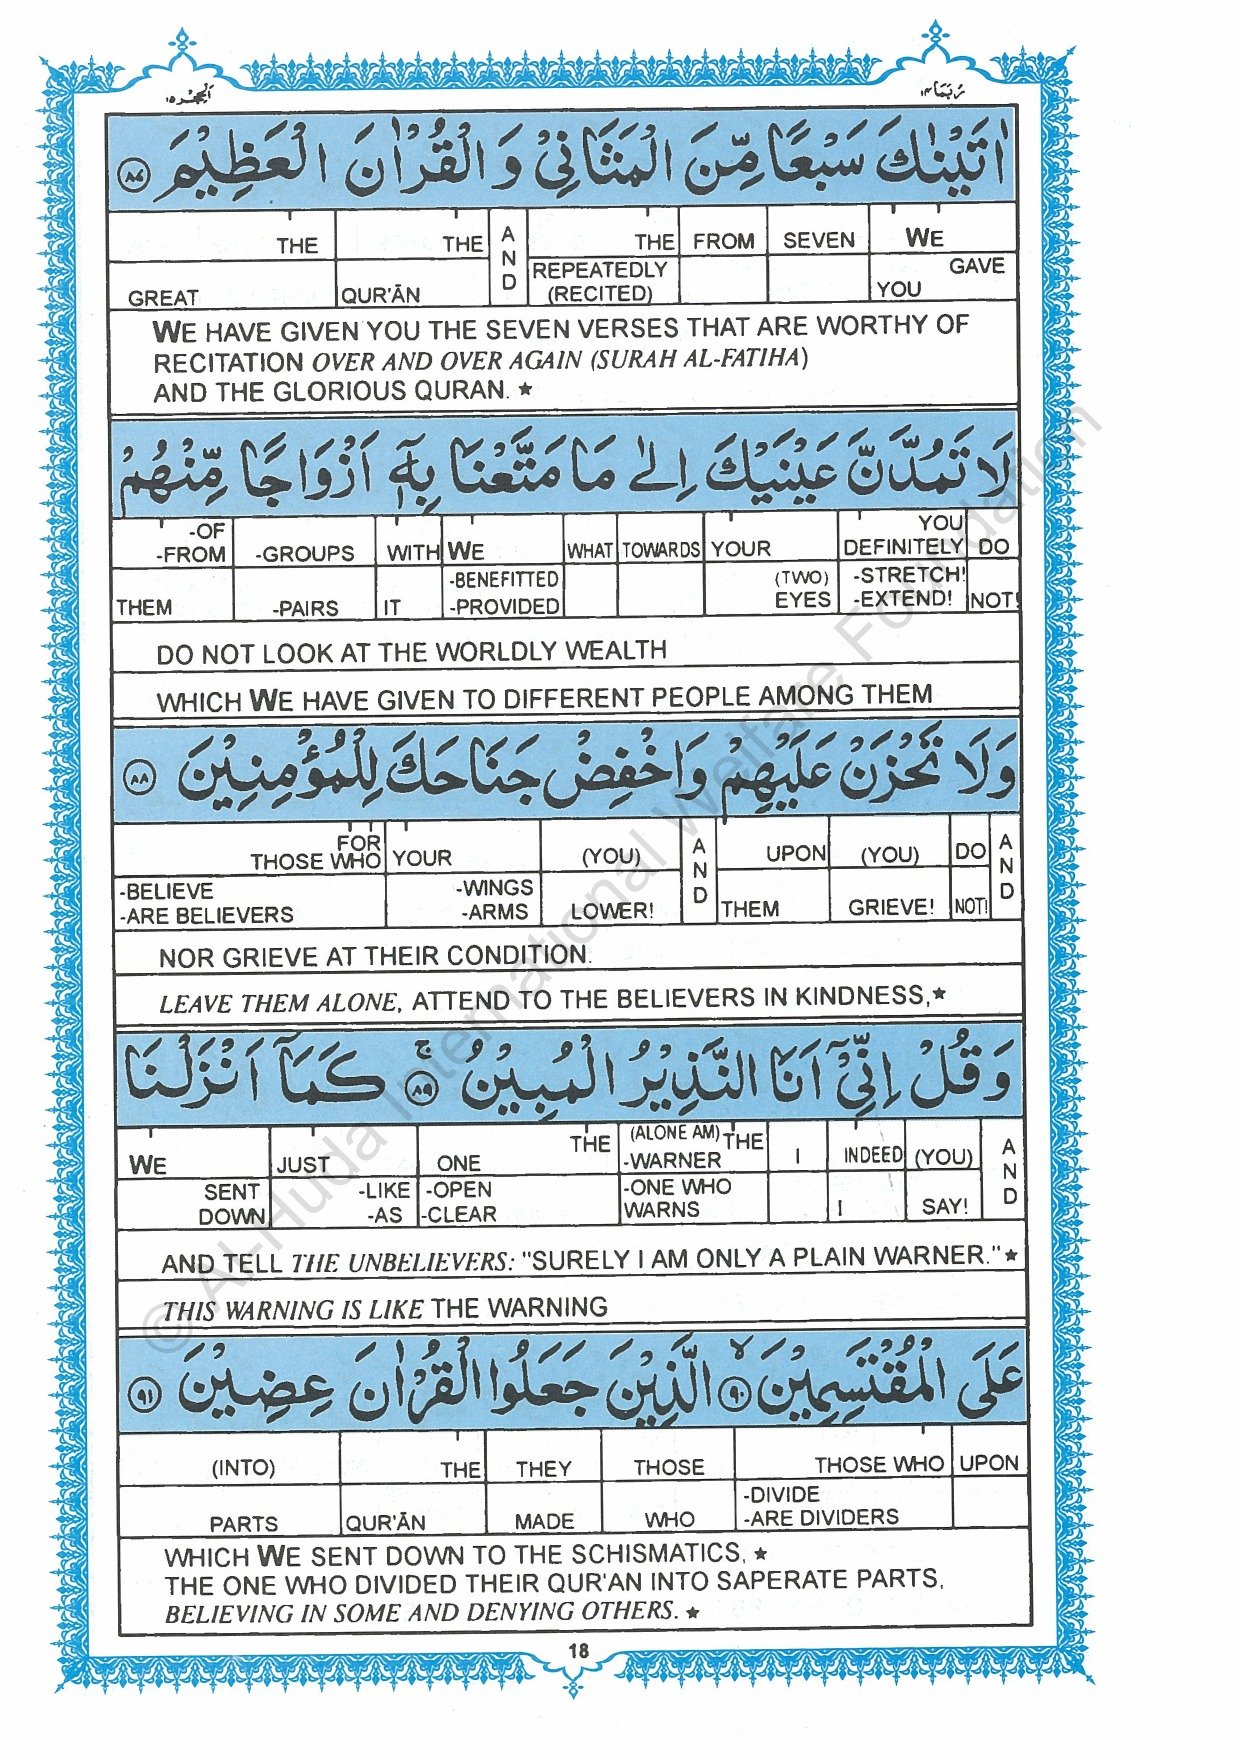 الحجر ١٥
ربما ١٤
اٰتَيْنٰكَ سَبْعًا مِّنَ الْمَثَانِيْ وَ الْقُرْاٰنَ الْعَظِيْمَ ٨٧
THE THE AND THE FROM SEVEN WE
GREAT QUR'ĀN REPEATEDLY (RECITED) GAVE YOU
WE HAVE GIVEN YOU THE SEVEN VERSES THAT ARE WORTHY OF
RECITATION OVER AND OVER AGAIN (SURAH AL-FATIHA)
AND THE GLORIOUS QURAN. ★
لَا تَمُدَّنَّ عَيْنَيْكَ اِلٰى مَا مَتَّعْنَا بِهٖٓ اَزْوَاجًا مِّنْهُمْ
-OF -FROM -GROUPS WITH WE WHAT TOWARDS YOUR YOU DEFINITELY DO
THEM -PAIRS IT -BENEFITTED -PROVIDED (TWO) EYES -STRETCH! -EXTEND! NOT!
DO NOT LOOK AT THE WORLDLY WEALTH
WHICH WE HAVE GIVEN TO DIFFERENT PEOPLE AMONG THEM
وَلَا تَحْزَنْ عَلَيْهِمْ وَاخْفِضْ جَنَاحَكَ لِلْمُؤْمِنِيْنَ ٨٨
FOR THOSE WHO YOUR (YOU) AND UPON (YOU) DO AND
-BELIEVE -ARE BELIEVERS -WINGS -ARMS LOWER! THEM GRIEVE! NOT!
NOR GRIEVE AT THEIR CONDITION.
LEAVE THEM ALONE, ATTEND TO THE BELIEVERS IN KINDNESS,★
وَ قُلْ اِنِّيْٓ اَنَا النَّذِيْرُ الْمُبِيْنُ ۚ ٨٩ كَمَآ اَنْزَلْنَا
WE JUST ONE THE (ALONE AM) THE -WARNER I INDEED (YOU) AND
SENT DOWN -LIKE -AS -OPEN -CLEAR -ONE WHO WARNS I SAY!
AND TELL THE UNBELIEVERS: "SURELY I AM ONLY A PLAIN WARNER."★
THIS WARNING IS LIKE THE WARNING
عَلَى الْمُقْتَسِمِيْنَ ۙ ٩٠ الَّذِيْنَ جَعَلُوا الْقُرْاٰنَ عِضِيْنَ ٩١
(INTO) THE THEY THOSE THOSE WHO UPON
PARTS QUR'ĀN MADE WHO -DIVIDE -ARE DIVIDERS
WHICH WE SENT DOWN TO THE SCHISMATICS, ★
THE ONE WHO DIVIDED THEIR QUR'AN INTO SAPERATE PARTS,
BELIEVING IN SOME AND DENYING OTHERS. ★
18
© Al-Huda International Welfare Foundation